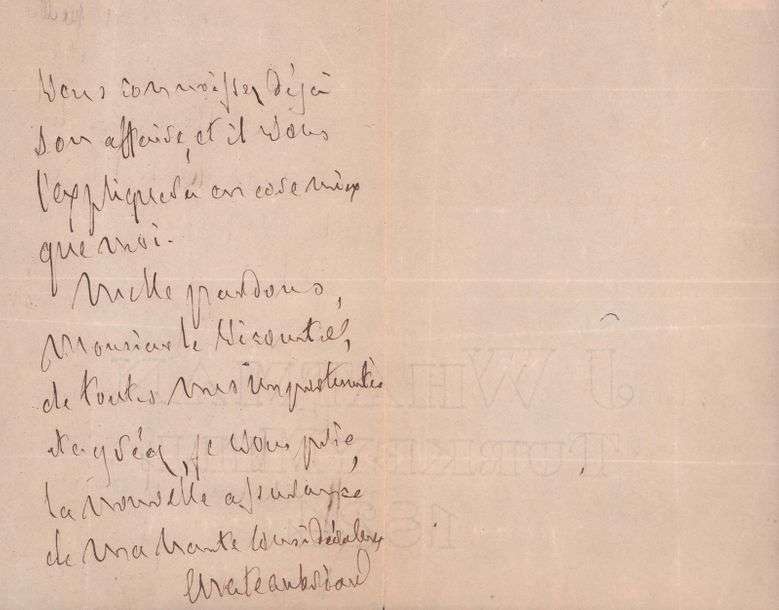 vous connoissez déjà
son affaire, et il vous
l'expliquera encore mieux
que moi.
Mille pardons,
Monsieur le Vicomte,
de toutes mes importunités
et agréez, je vous prie,
la nouvelle assurance
de ma haute considération
Chateaubriand
J WHATMAN
TURKEY MILL